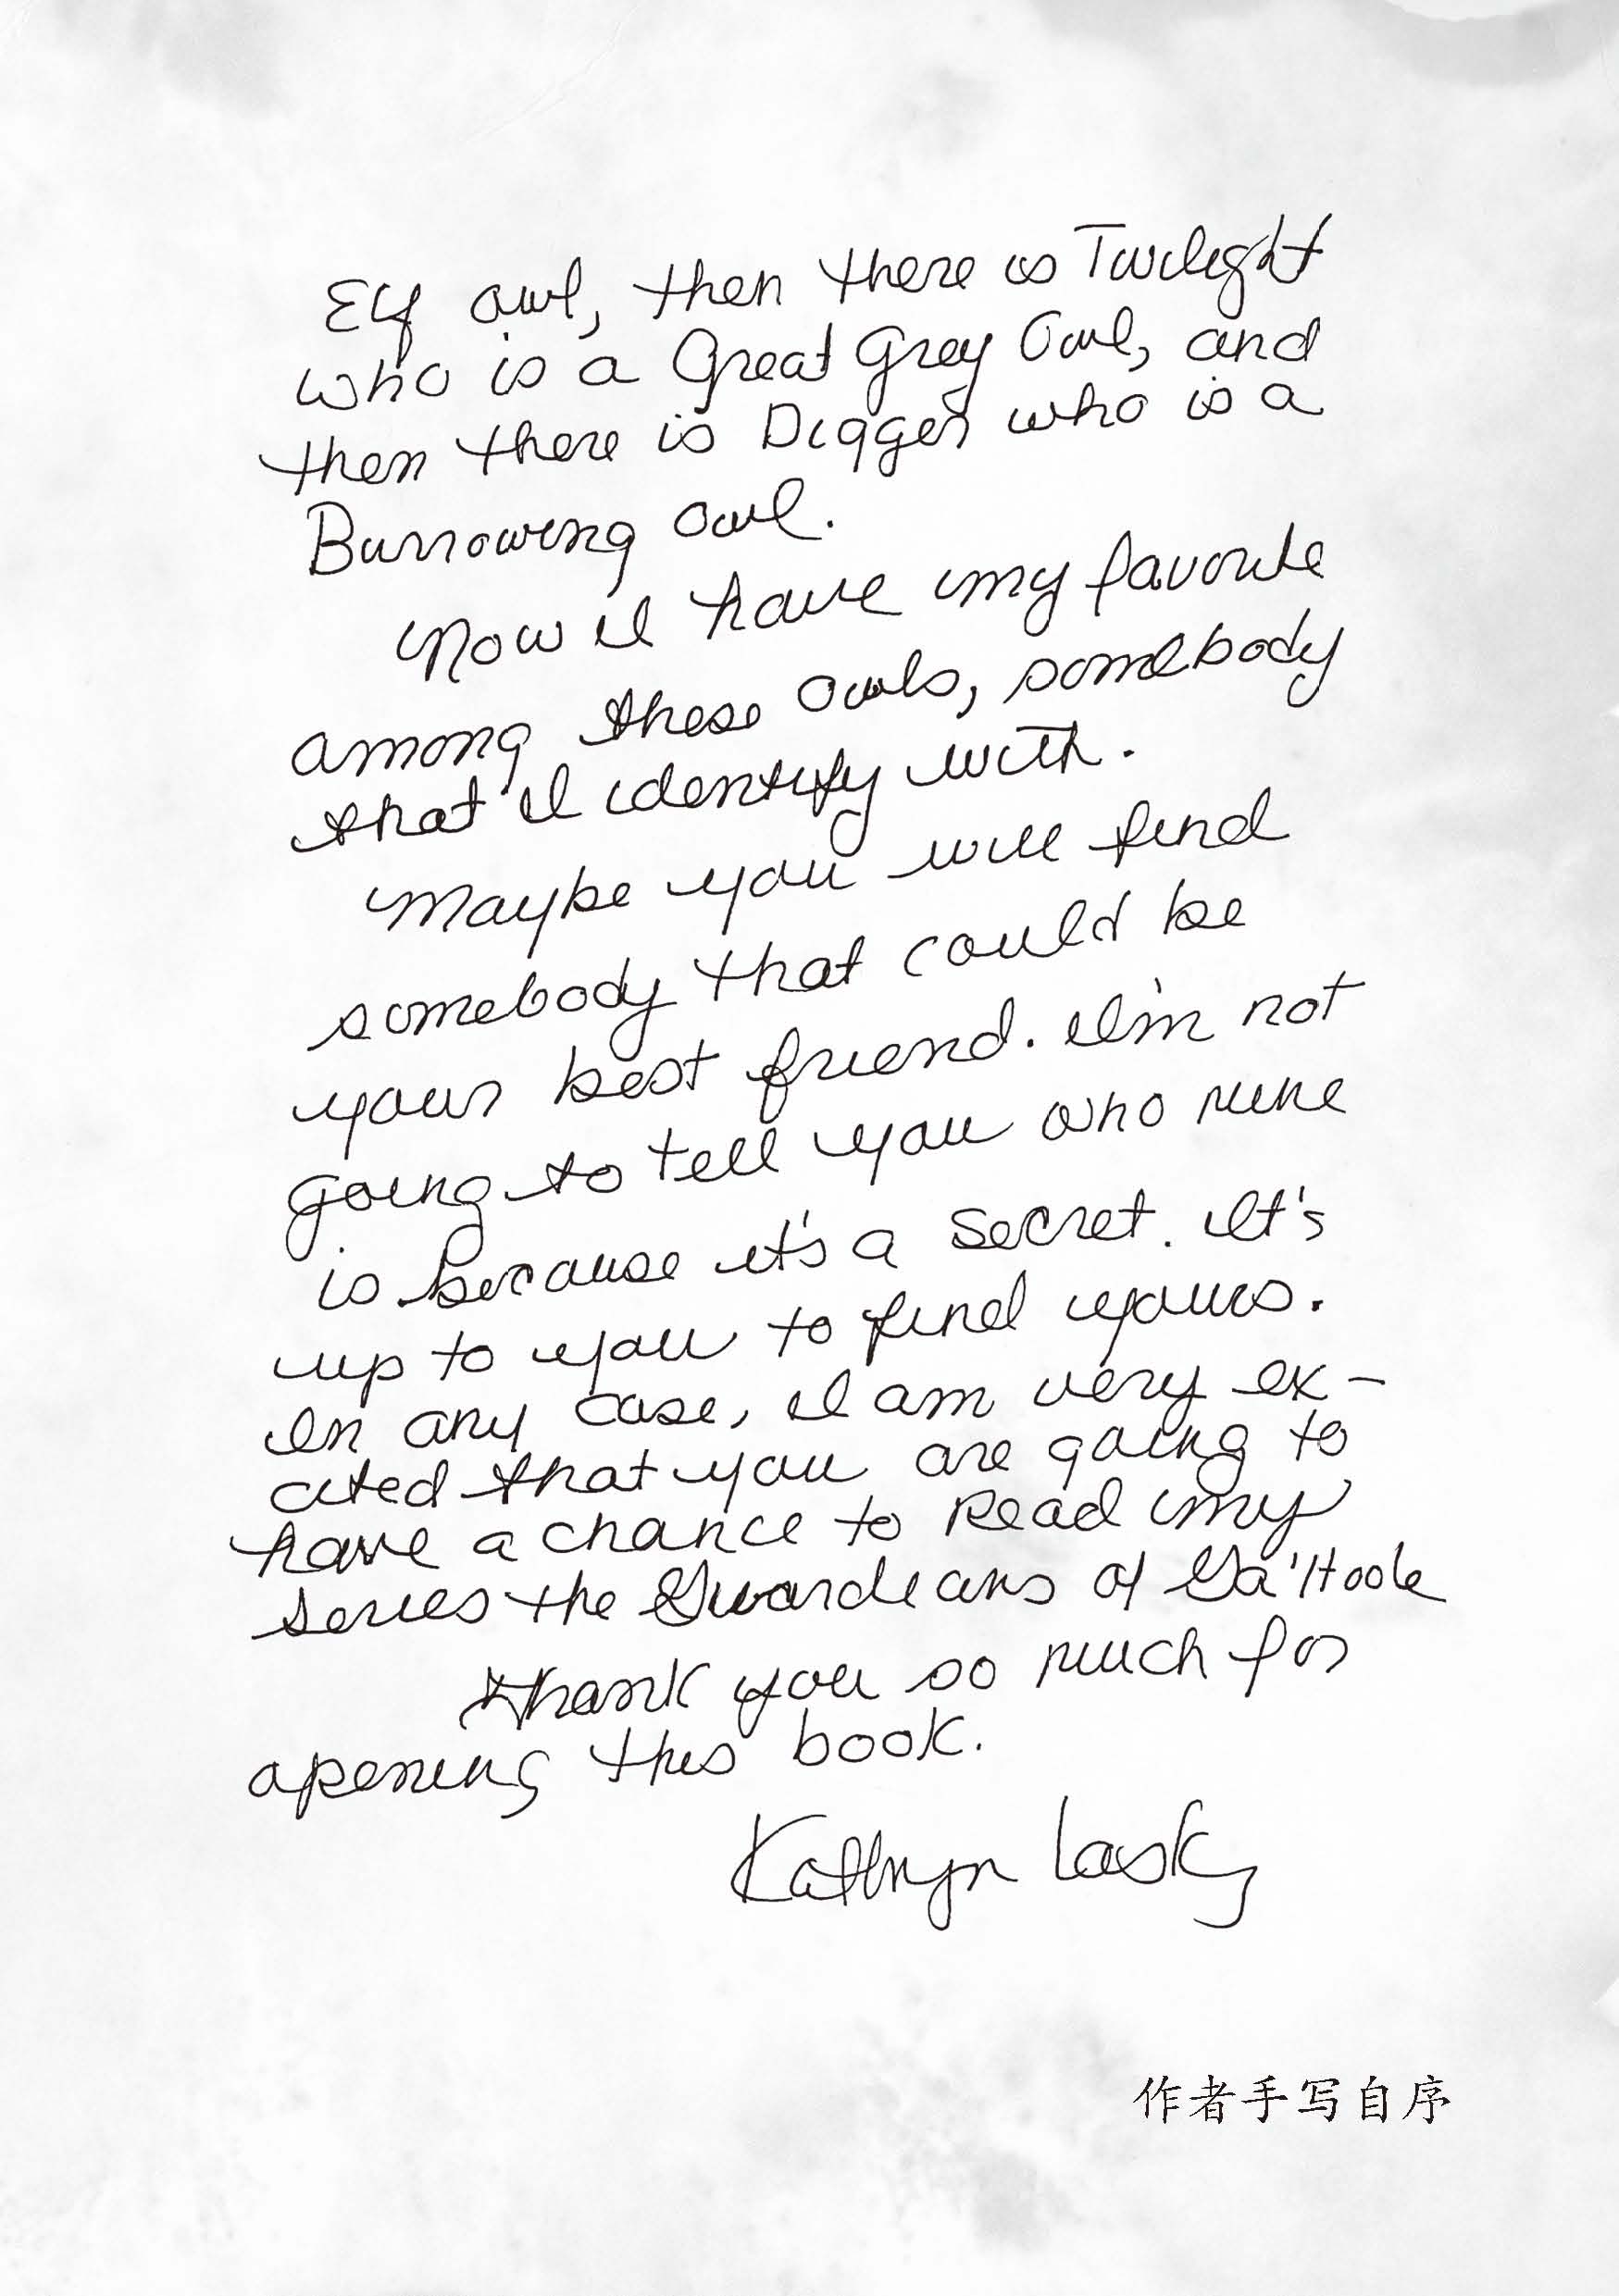 Elf owl, then there is Twilight
who is a Great Grey Owl, and
then there is Digger who is a
Burrowing Owl.
Now I have my favorite
among these owls, somebody
that I identify with.
Maybe you will find
somebody that could be
your best friend. I'm not
going to tell you who mine
is because it's a secret. It's
up to you to find yours.
In any case, I am very ex-
cited that you are going to
have a chance to read my
series the Guardians of Ga'Hoole
Thank you so much for
opening this book.
Kathryn Lasky
作者手写自序